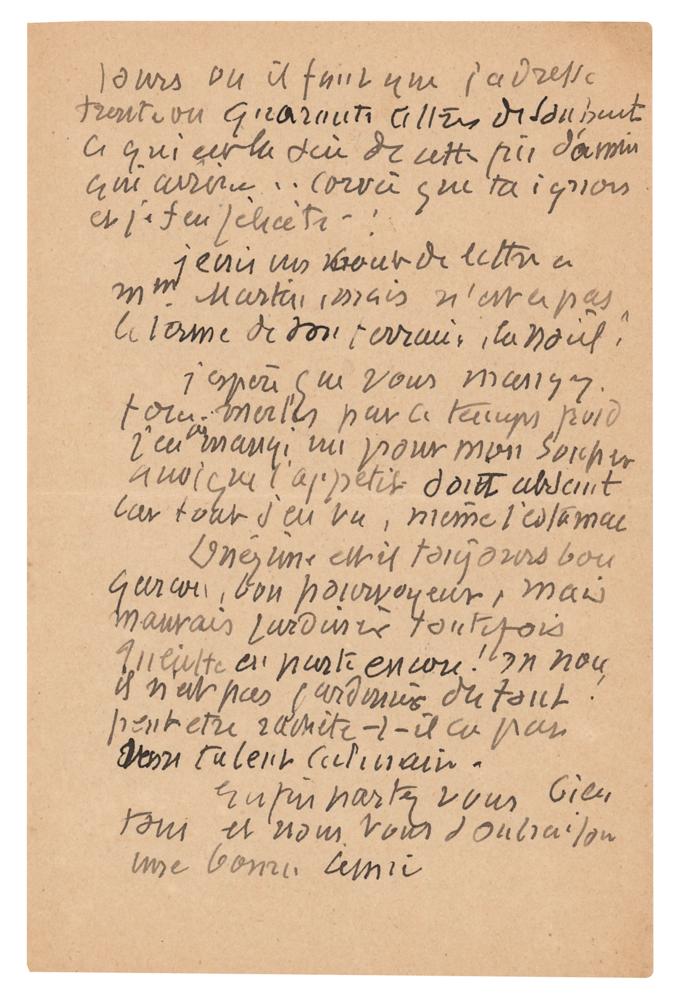 jours ou il faut que j'adresse
trente ou quarante lettres disant
ce qui est la de cette fin d'année
qui arrive .. corvée que tu ignores
et je t'en félicite - !
j'écris un mot de lettre a
Mme Martin, mais n'est ce pas
le terme de son terrain, la Noël ?
j'espère que vous mangez
merles par ce temps froid
j'en ai mangé un pour mon souper
quoique l'appétit soit absent
car tout s'en va, même l'estomac
Onésime est il toujours bon
garçon, bon pourvoyeur, mais
mauvais jardinier toutefois
en parte encore ! on non
il n'est pas jardinier du tout !
peut etre rachète-t-il ça par
son talent culinaire.
Enfin portez vous bien
tous et nous vous souhaitons
une bonne année